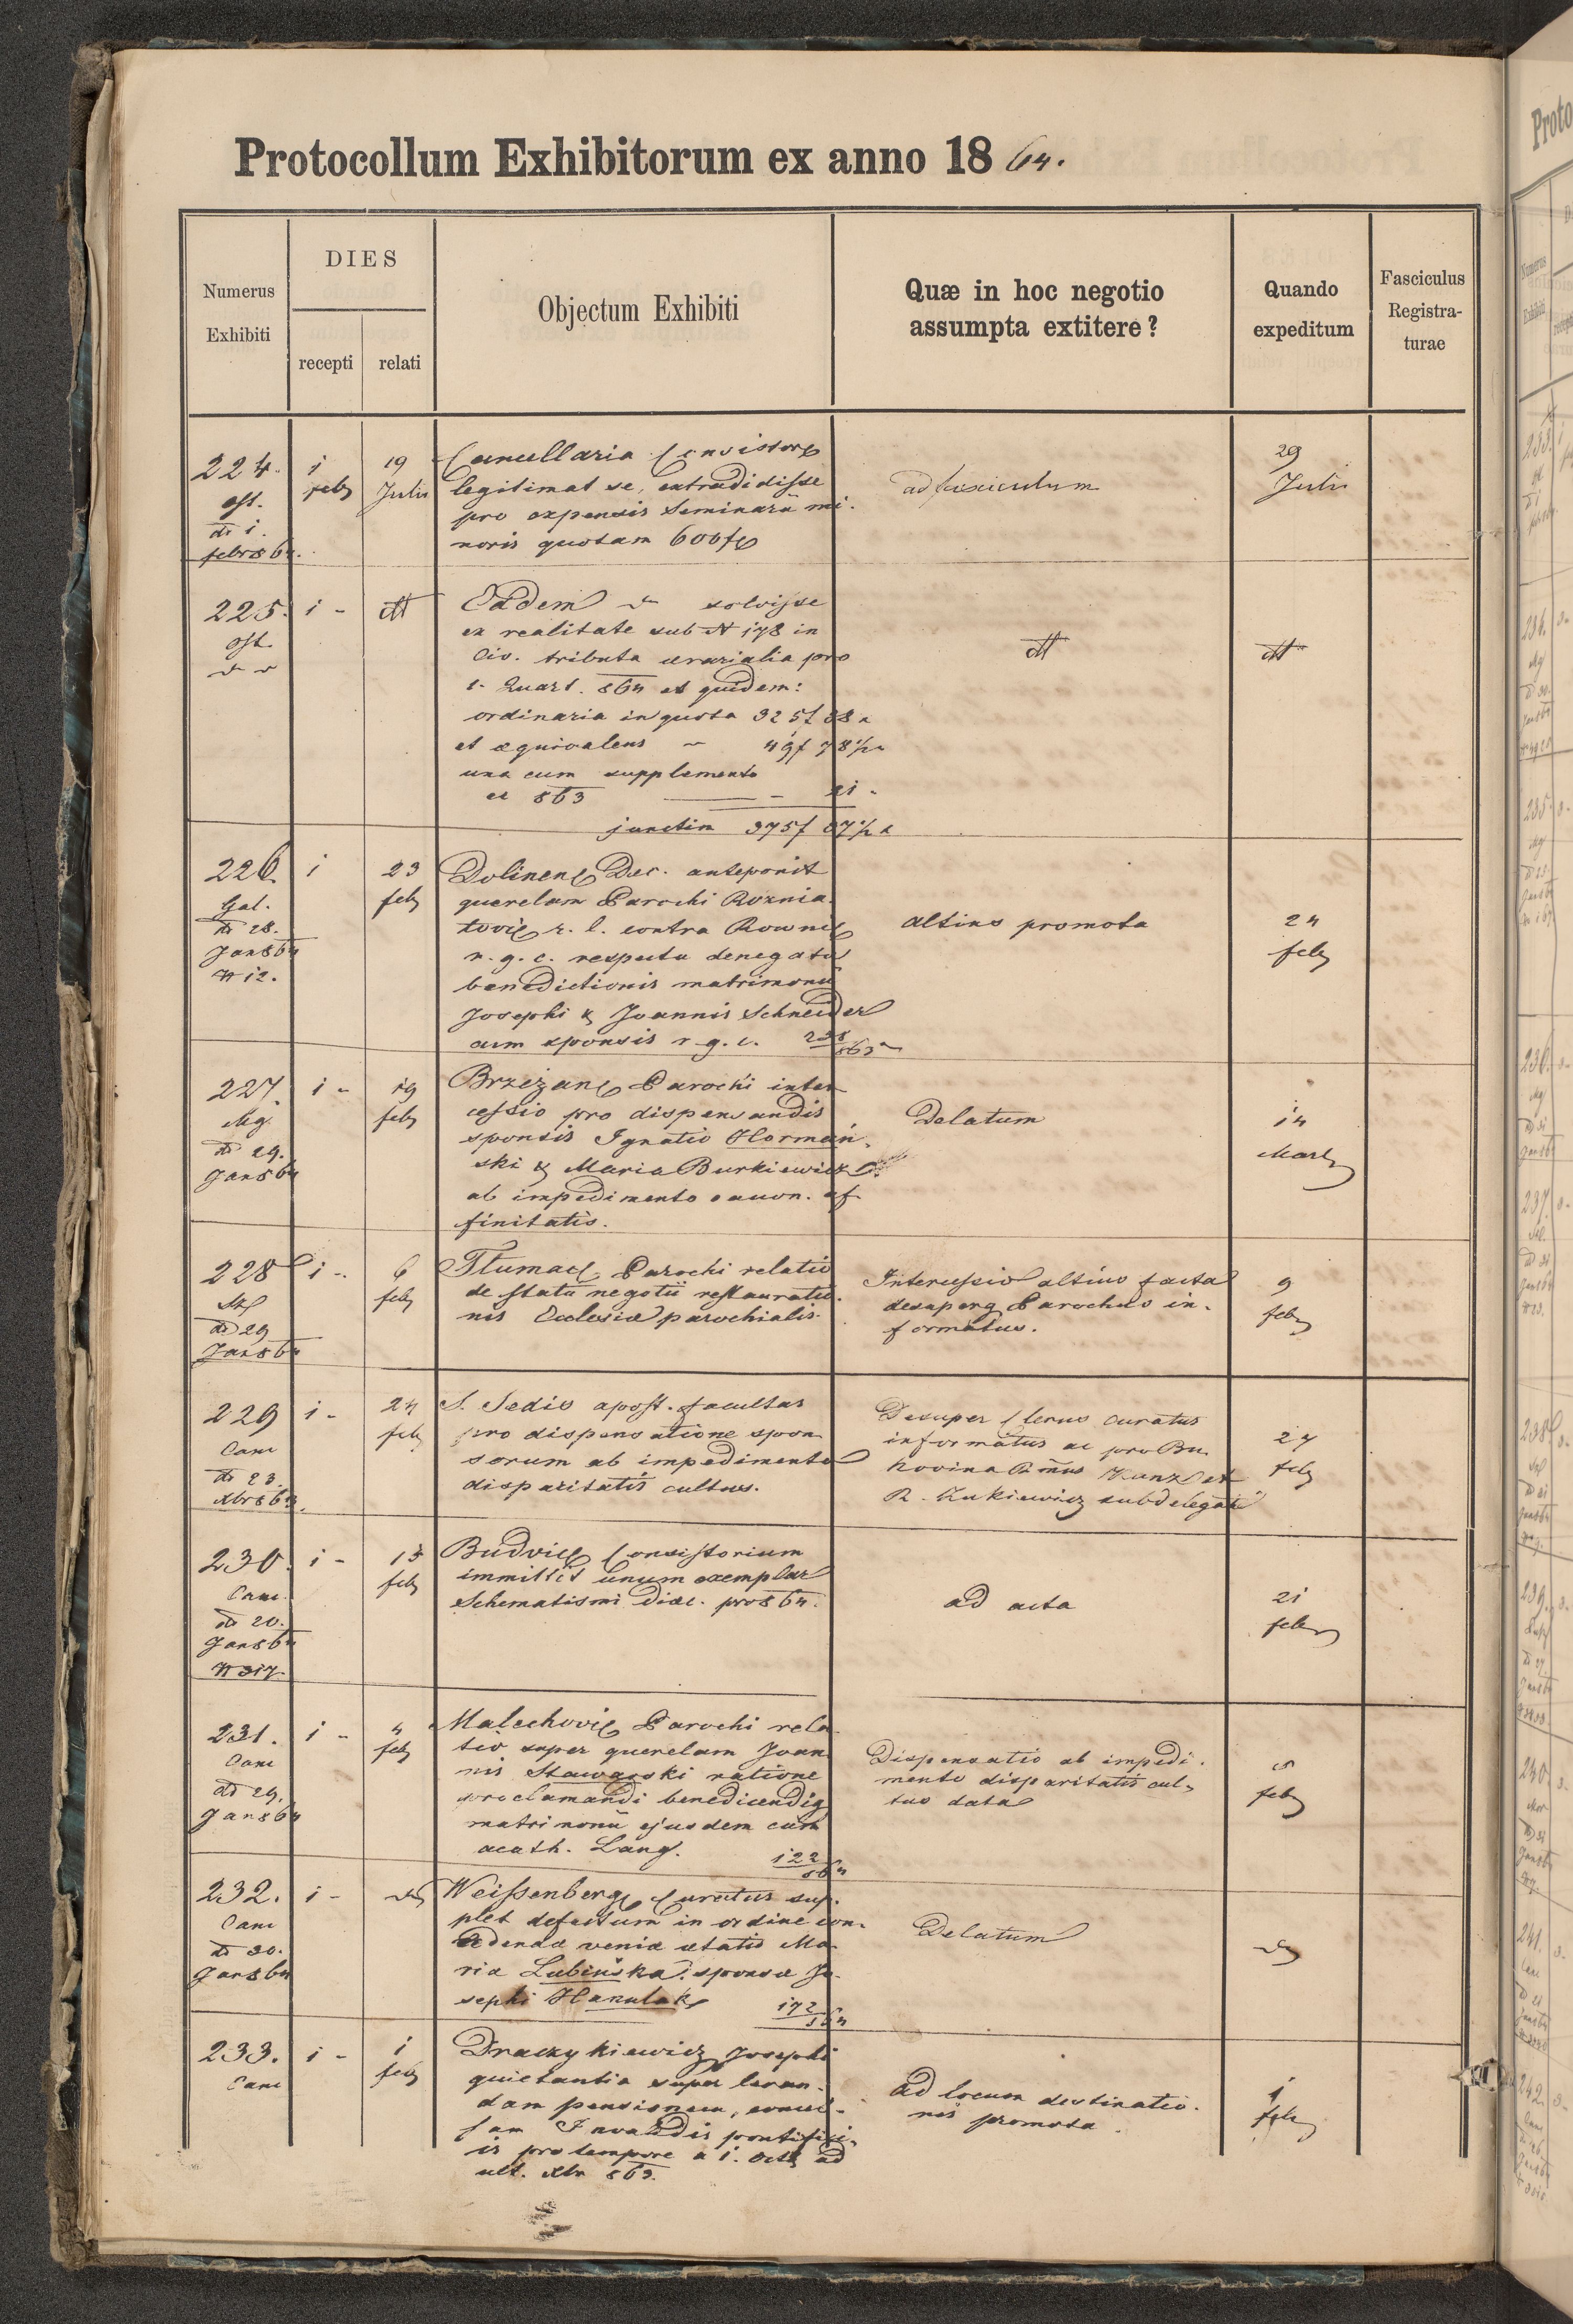 Protocollum Exhibitorum ex anno 18 64.
Numerus
Exhibiti
DIES
recepti
relati
Objectum Exhibiti
Quæ in hoc negotio
assumpta extitere?
Quando
expeditum
Fasciculus
Registra-
turae
224.
dt i.
febr 864.
i
feb
19
Julii
Cancellaria Consistor
legitimat se, extradidisse
pro expensis Seminarii mi-
noris quotam 600 f
ad fasciculum
29
Julii
225.
i -
dtt
Eadem solvisse
ex realitate sub N 178 in
Civ. tributa aerarialia pro
1. Quart. 864 et quidem:
ordinaria in quota 325 f 38
et aequivalens 49 f 78 1/2
una cum supplemento
ex 863 - 21 -
junctim 375 f 37 1/2
dtt
dtt
226.
Gal.
dt 28.
Jan 864
N 12.
i
23
feb
Dolinen Dec. anteponit
querelam Parochi Roznia-
tovie r. l. contra Rowni
r. g. c. respectu denegatae
benedictionis matrimonii
Josephi & Joannis Schneider
cum sponsis r. g. c. 238/863
altius promota
24
feb
227.
Mg.
dt 29.
Jan 864
i -
19
feb
Brzeżan Parochi inter-
cessio pro dispensandis
sponsis Ignatio Hormań-
ski & Maria Burkiewicz
ab impedimento canon. af-
finitatis.
Delatum
14
Mart
228
dt 29
Jan 864
i -
6
feb
Tłumac Parochi relatio
de statu negotii restauratio-
nis Ecclesiae parochialis.
Intercessio altius facta
desuperq Parochus in-
formatus.
9
feb
229
Canc
dt 23.
Xbr 863.
i -
24
feb
S. Sedis apost. facultas
pro dispensatione spon-
sorum ab impedimento
disparitatis cultus.
Desuper Clerus curatus
informatus ac pro Bu-
kovina Kunz et
R. Kukiewicz subdelegati
27
feb
230.
Canc.
dt 20.
Jan 864
N 317.
i -
13
feb
Budvic Consistorium
immittit unum exemplar
Schematismi Diæc. pro 864.
ad acta
21
feb
231.
Canc
dt 29.
Jan 864
i -
4
feb
Malechovie Parochi rela-
tio super querelam Joan-
nis Stawarski ratione
proclamandi benedicendiq
matrimonii ejusdem cum
acath. Lang. 122/864
Dispensatio ab impedi-
mento disparitatis cul-
tus data
5
feb
232.
Canc
dt 30.
Jan 864
i -
Weissenberg Curatus sup-
plet defectum in ordine con-
cedendae veniae aetatis Ma-
ria Lubińska, sponsae Jo-
sephi Hanulak 172/864
Delatum
233.
Canc
i -
i
feb
Draczykiewicz Josephi
quietantia super levan-
dam pensionem, conces-
sam Invalidis pontifici-
is pro tempore a 1. Octb ad
ult. Xbr 863.
ad locum destinatio-
nis promota.
1
feb